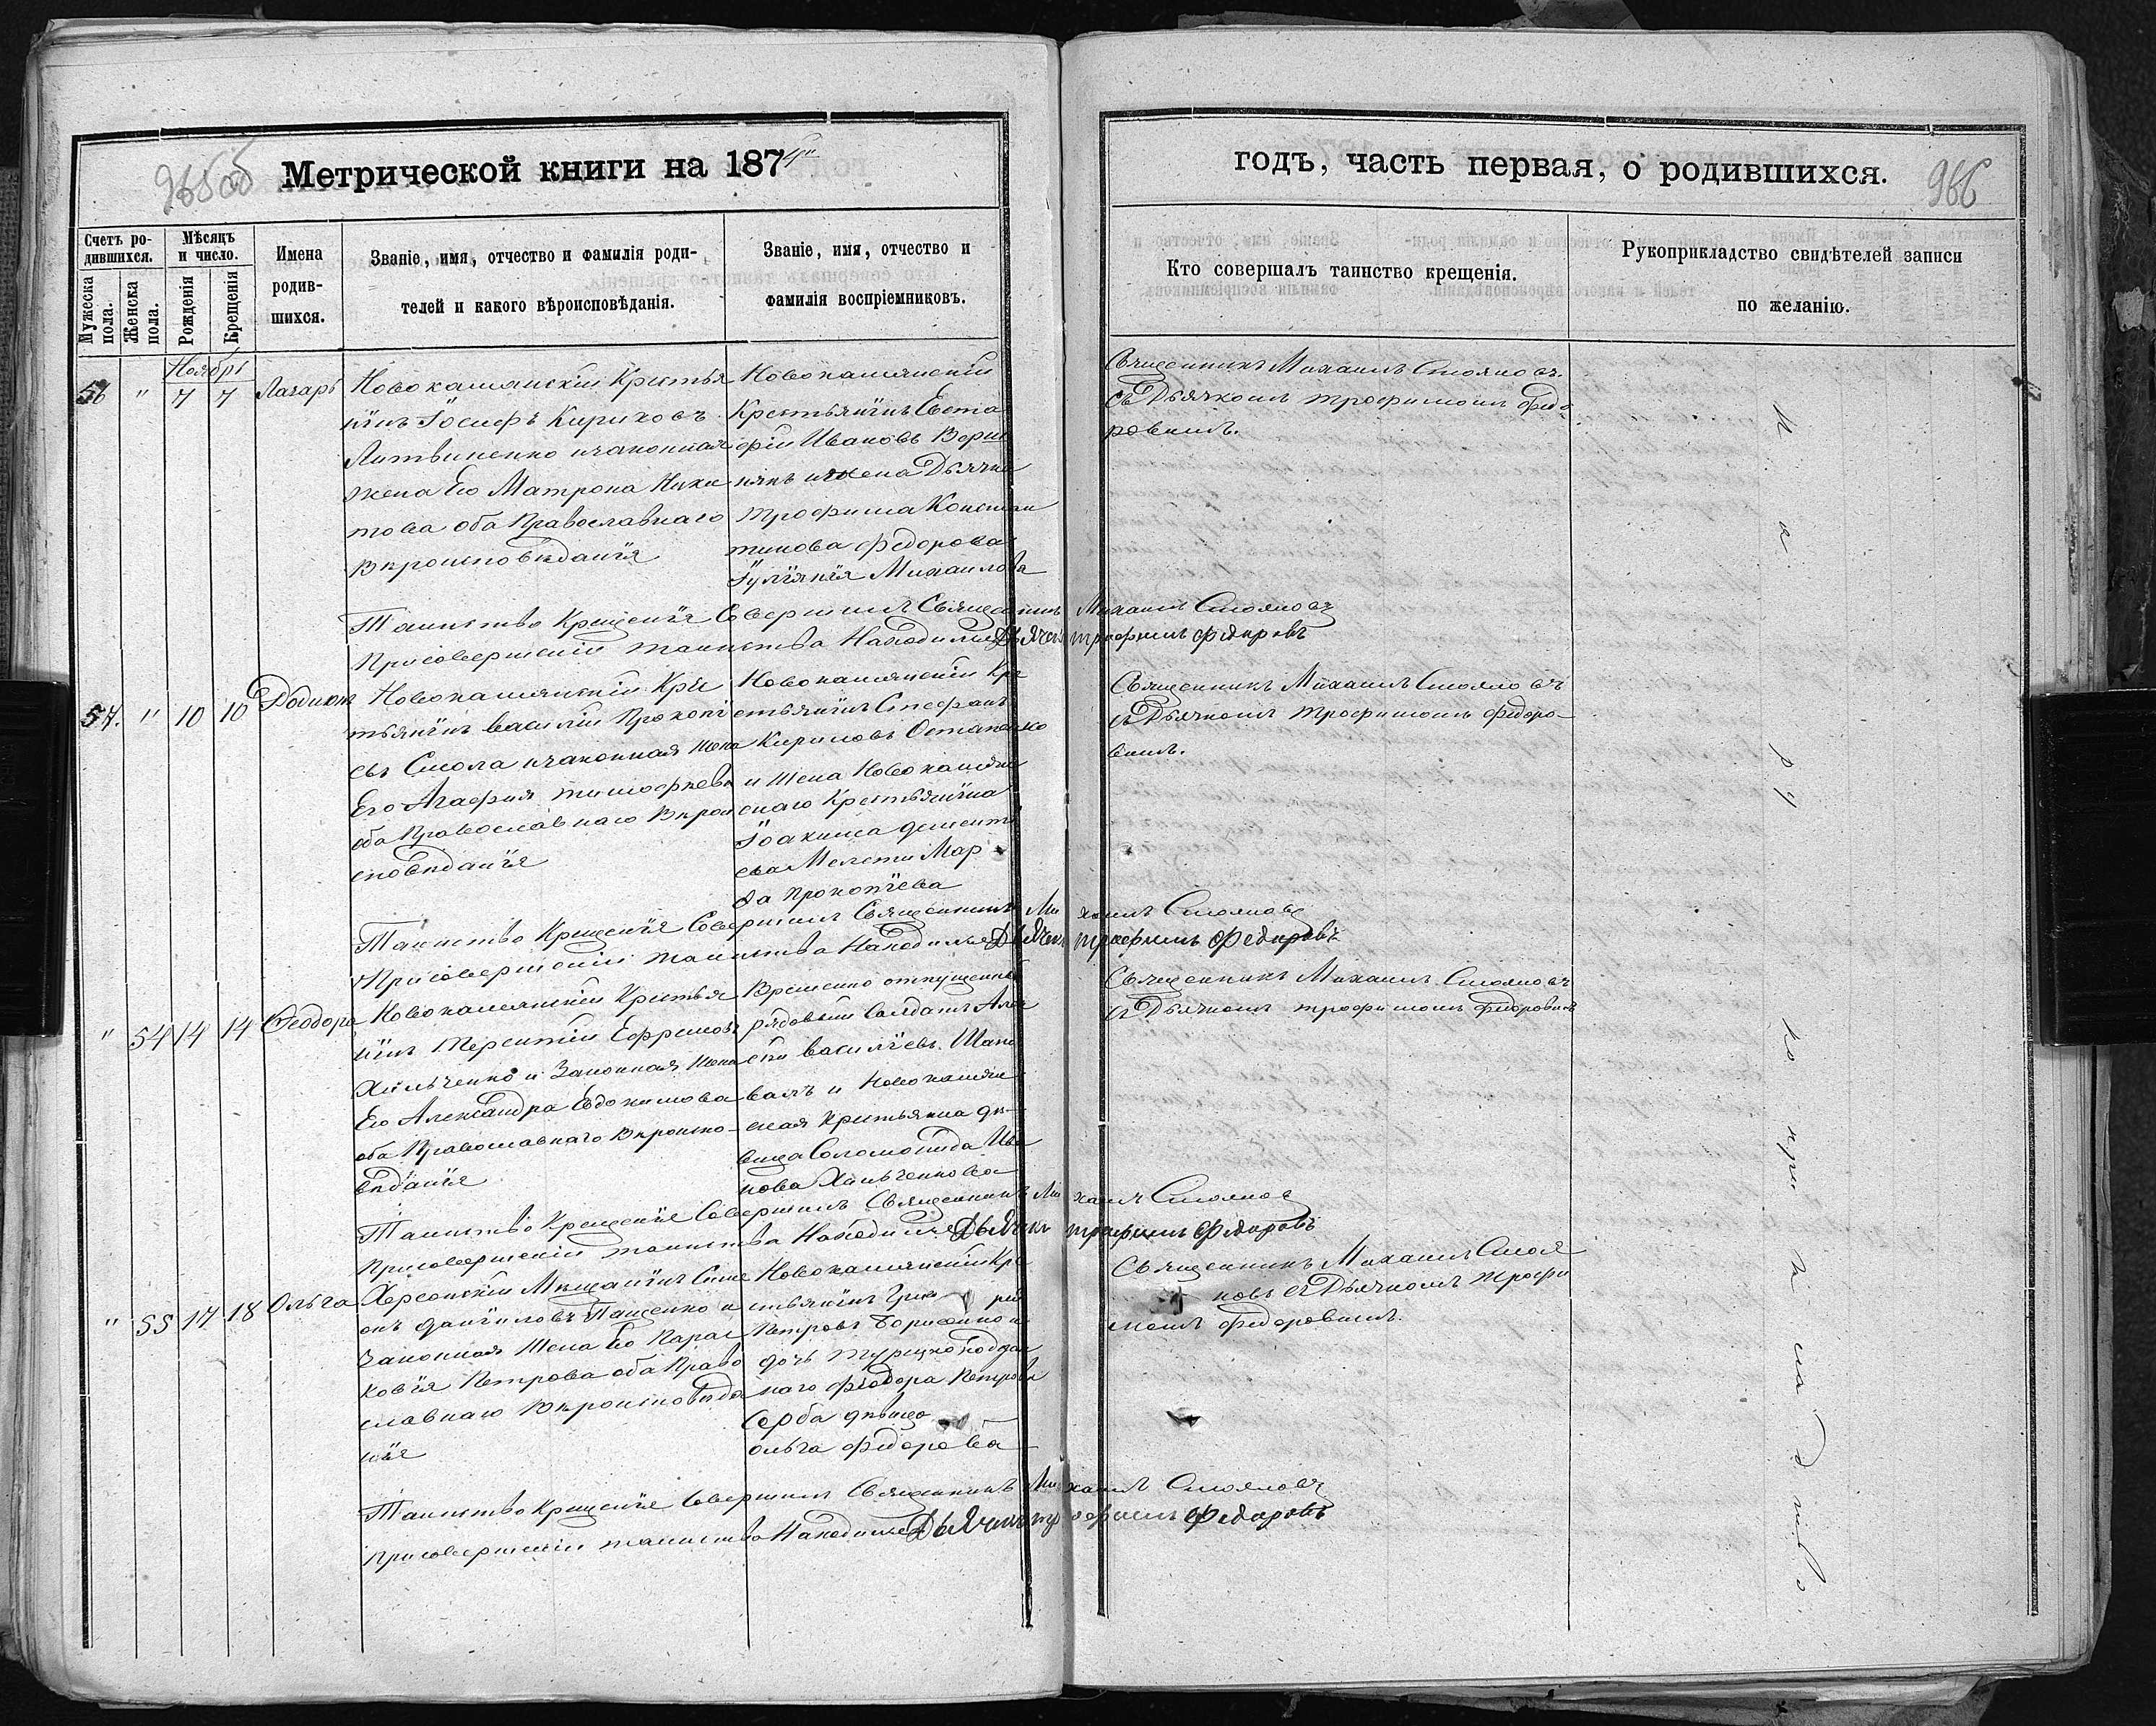 965 об
Метрической книги на 1874й
годъ, часть первая, о родившихся.
966
Счетъ ро-
дившихся.
Мужеска
пола.
Женска
пола.
Мѣсяцъ
и число.
Рожденія
Крещенія
Имена
родив-
шихся.
Званіе, имя, отчество и фамилія роди-
телей и какого вѣроисповѣданія.
Званіе, имя, отчество и
фамилія воспріемниковъ.
Кто совершалъ таинство крещенія.
Рукоприкладство свидѣтелей записи
по желанію.
Ноябрь
56 " 7 7 Лазарь
Новокаменскій Крестья
нинъ Іосифъ Кириковъ
Литвиненко и законная
жена Его Матрона Ники
това оба Православнаго
Вѣроисповѣданія
Новокаменскій
Крестьянинъ Евста
фій Ивановъ
и жена Дьячка
Трофима Констан
тинова Федорова
Іуліанія Михаилова
Священникъ Михаилъ Стояновъ
съ Дьячкомъ Трофимомъ Федо
ровымъ.
Таинство Крещенія Совершилъ Священникъ Михаилъ Стояновъ
При совершеніи таинства Находился Дьячекъ Трофимъ Федоровъ
57. " 10 10 Родіонъ
Новокаменскій Кре
стьянинъ Василій Прокопі
евъ Смола и законная жена
Его Агафия Тимофѣева
оба Православнаго Вѣрои
сповѣданія
Новокаменскій Кре
стьянинъ Стефанъ
Кириловъ Остапенко
и жена Новокамен
скаго Крестьянина
Іоакима Демент
ева Мелети Мар
ѳа Прокопіева
Священникъ Михаилъ Стояновъ
съ Дьячкомъ Трофимомъ Федоро-
вымъ.
Таинство Крещенія Совершилъ Священникъ Михаилъ Стояновъ
При совершеніи таинства Находился Дьячекъ Трофимъ Федоровъ
" 54 14 14 Феодора
Новокаменскій Крестья
нинъ Терентій Ефремовъ
Хильченко и Законная жена
Его Александра Евдокимова
оба Православнаго Вѣроиспо-
вѣданія
Временно отпущенный
рядовый Солдатъ Алек
сѣй Василіевъ Шапо
валъ и Новокамен
ская Крестьянка дѣ-
вица Соломонида Ива
нова Хильченкова
Священникъ Михаилъ Стояновъ
съ Дьячкомъ Трофимомъ Федоровымъ
Таинство Крещенія Совершилъ Священникъ Михаилъ Стояновъ
При совершеніи таинства Находился Дьячекъ Трофимъ Федоровъ
" 55 17 18 Ольга
Херсонскій Мѣщанинъ Симе
онъ Даніиловъ Пащенко и
законная жена Его Парас
ковія Петрова оба Право
славнаго Вѣроисповѣда
нія
Новокаменскій Кре
стьянинъ Григорій
Петровъ Борисенко и
дочь Турецкоподдан
наго Феодора Петрова
Серба дѣвица
Ольга Федорова
Священникъ Михаилъ Стоя
новъ съ Дьячкомъ Трофи
момъ Федоровымъ.
Таинство Крещенія Совершилъ Священникъ Михаилъ Стояновъ
При совершеніи таинства Находился Дьячекъ Трофимъ Федоровъ